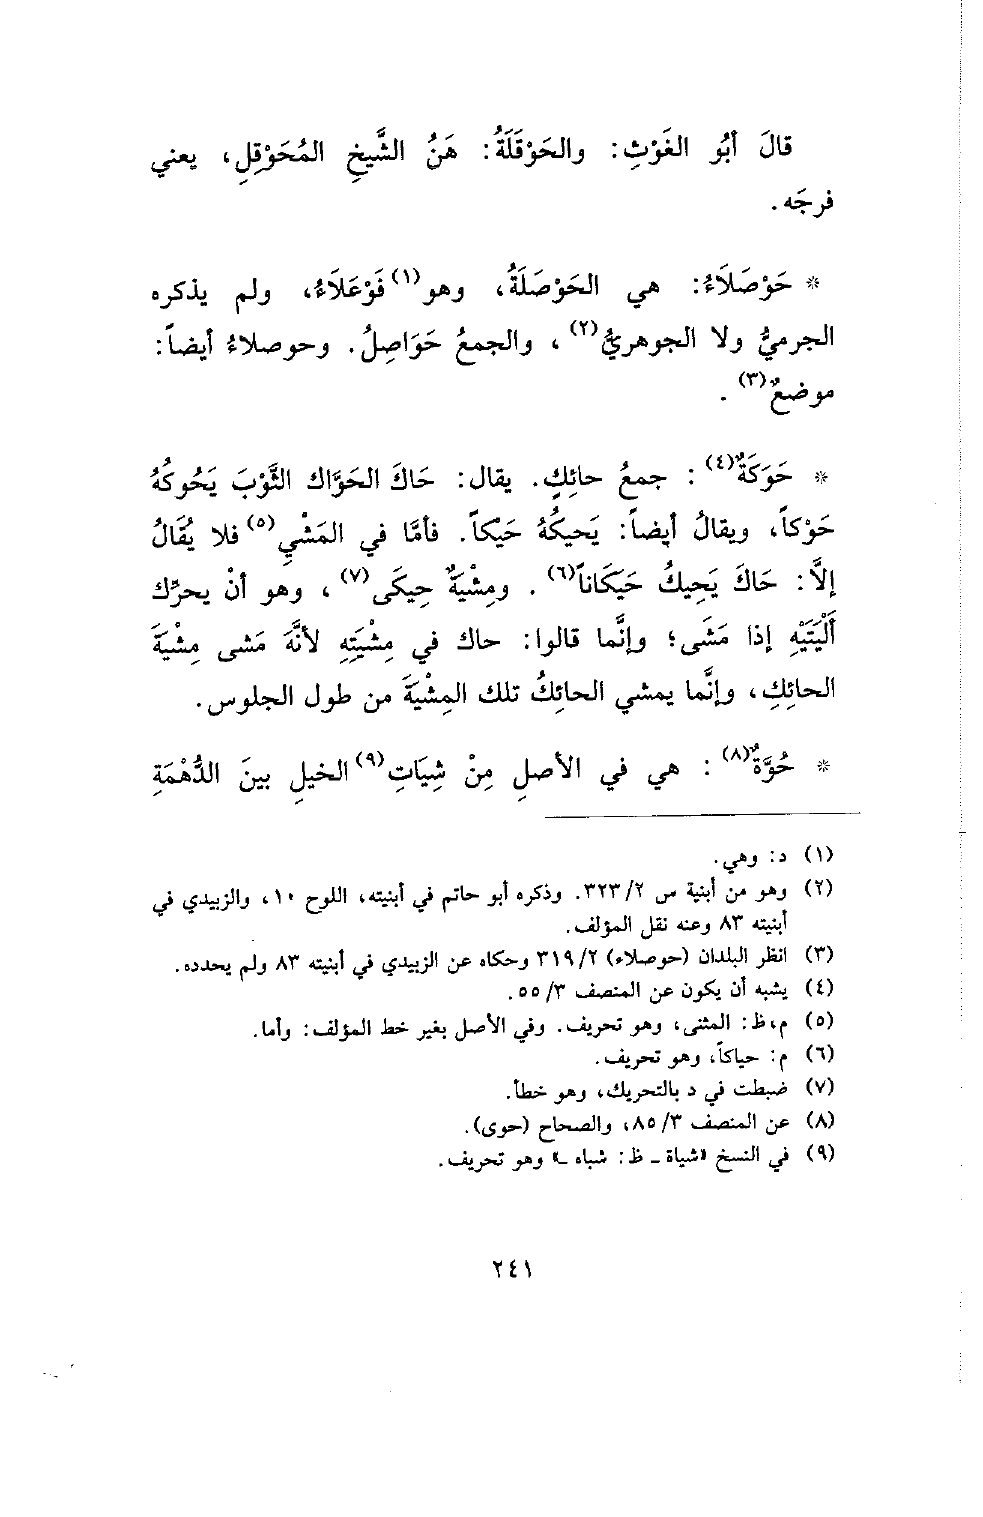 قالَ أبُو الغَوْثِ: والحَوْقَلَةُ: هَنُ الشَّيخِ المُحَوْقِلِ، يعني
فرجَه.
* حَوْصَلَاءُ: هي الحَوْصَلَةُ، وهو(١) فَوْعَلَاءُ، ولم يذكره
الجرميُّ ولا الجوهريُّ(٢)، والجمعُ حَوَاصِلُ. وحوصلاءُ أيضاً:
موضعٌ(٣).
* حَوَكَةٌ(٤): جمعُ حائِكٍ. يقال: حَاكَ الحَوَّاك الثَّوْبَ يَحُوكُهُ
حَوْكاً، ويقالُ أيضاً: يَحيكُهُ حَيْكاً. فأمَّا في المَشْيِ(٥) فلا يُقَالُ
إلاَّ: حَاكَ يَحِيكُ حَيَكَاناً(٦). ومِشْيَةٌ حِيكَى(٧)، وهو أنْ يحرّك
أَلْيَتَيْهِ إذا مَشَى؛ وإنَّما قالوا: حاك في مِشْيَتِهِ لأنَّهَ مَشى مِشْيَةَ
الحائِكِ، وإنَّما يمشي الحائِكُ تلك المِشْيَةَ من طول الجلوس.
* حُوَّةٌ(٨): هي في الأصلِ مِنْ شِيَاتِ(٩) الخيلِ بينَ الدُّهْمَةِ
(١) د: وهي.
(٢) وهو من أبنية س ٣٢٣/٢. وذكره أبو حاتم في أبنيته، اللوح ١٠، والزبيدي في
أبنيته ٨٣ وعنه نقل المؤلف.
(٣) انظر البلدان (حوصلاء) ٣١٩/٢ وحكاه عن الزبيدي في أبنيته ٨٣ ولم يحدده.
(٤) يشبه أن يكون عن المنصف ٥٥/٣.
(٥) م،ظ: المثنى، وهو تحريف. وفي الأصل بغير خط المؤلف: وأما.
(٦) م: حياكاً، وهو تحريف.
(٧) ضبطت في د بالتحريك، وهو خطأ.
(٨) عن المنصف ٨٥/٣، والصحاح (حوى).
(٩) في النسخ «شياة ـ ظ: شباه ـ» وهو تحريف.
٢٤١